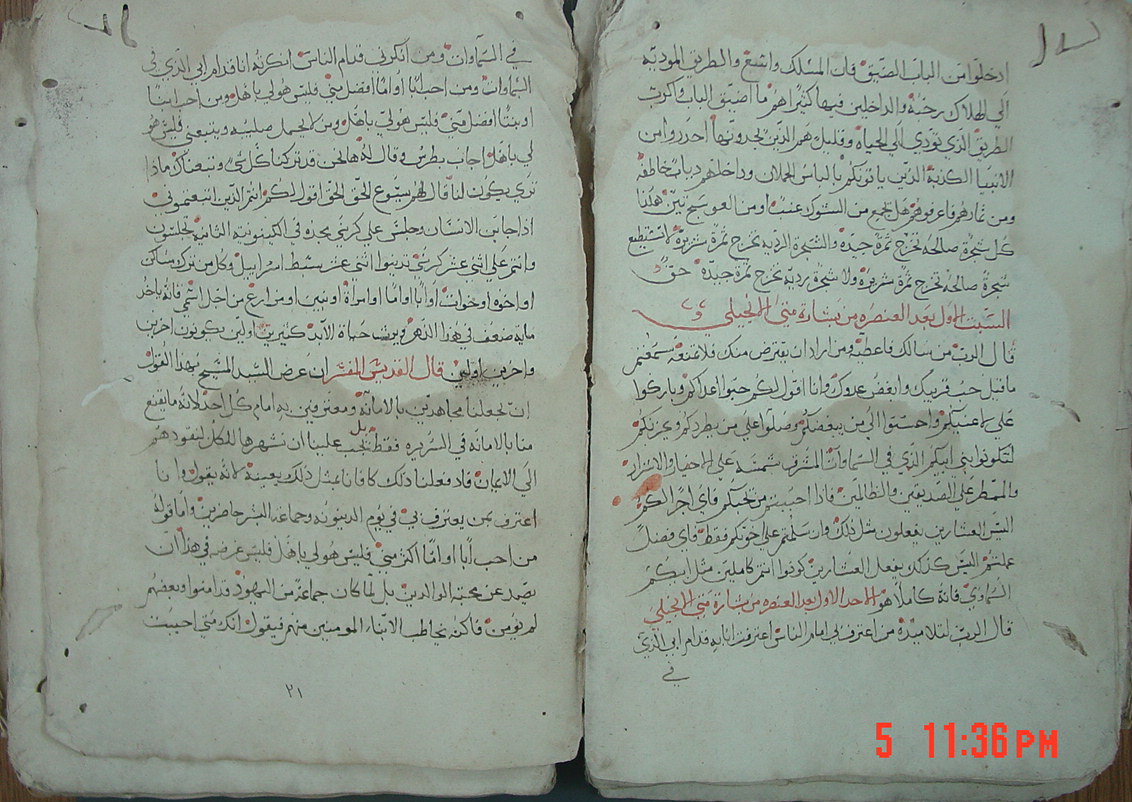 ادخلوا من الباب الضيق فان المسلك واسع والطريق المودية
الي الهلاك رحبة والداخلين فيها كثيراهم ما اضيق الباب واكرب
الطريق الذي تودي الي الحياة وقليل هم الذين يجدونها احدروا من
الانبيا الكدبة الذين ياتونكم بلباس الحملان وداخلهم دياب خاطفة
ومن تمارهم فاعرفوهم هل يجمع من الشوك عنب او من العوسج تين هكذا
كل شجرة صالحة تخرج تمرة جيدة والشجرة الردية تخرج تمرة شريرة لا تستطيع
شجرة صالحة تخرج تمرة شريرة ولا شجرة ردية تخرج تمرة جيدة
السبت الاول بعد العنصره من بشارة متي الانجيلي
قال الرب من سالك فاعطيه ومن اراد ان يقترض منك فلا تمنعه سمعتم
ما قيل حب قريبك وابغض عدوك وانا اقول لكم حبوا اعداكم وباركوا
علي لاعنيكم واحسنوا الي من يبغضكم وصلوا علي من يطردكم ويحزنكم
لتكونوا بني ابيكم الذي في السماوات المشرق شمسه علي الاخيار والاشرار
والممطر علي الصديقين والظالمين فادا احببتم من يحبكم فاي اجر لكم
اليس العشارين يفعلون مثل ذلك وان سلمتم علي اخوتكم فقط فاي فضل
عملتم اليس كذلك يفعل العشارين كونوا انتم كاملين مثل ابيكم
السماوي فانه كاملا هو الاحد الاول بعد العنصره من بشارة متي الانجيلي
قال الرب لتلاميده من اعترف بي امام الناس اعترفت انا به قدام ابي الذي
في
في السماوات ومن انكرني قدام الناس انكرته انا قدام ابي الذي في
السماوات ومن احب ابا او اما افضل مني فليس هو لي باهل ومن احب ابنا
او بنتا افضل مني فليس هو لي باهل ومن لا يحمل صليبه ويتبعني فليس هو
لي باهل اجاب بطرس وقال له ها نحن قد تركنا كل شي وتبعناك ماذا
تري يكون لنا قال لهم يسوع الحق الحق اقول لكم انتم الذين اتبعتموني
اذا جا ابن الانسان وجلس علي كرسي مجده في الكينونيه الثانية تجلسون
وانتم علي اثني عشر كرسي تدينوا اثني عشر سبط اسراييل وكل من ترك مساكن
او اخوه او خوات او ابا او اما او امراة او بنين او مزارع من اجل اسمي فانه ياخد
ماية ضعف في هذا الدهر ويرث حياة الابد كثيرين اولين يكونون اخرين
واخرين اولين قال القديس المفسر ان غرض السيد المسيح بهذا القول
ان يجعلنا مجاهدين بالامانة ومعترفين به امام كل احد لانه ما يقنع
منا بالامانه في السريره فقط بل يجب علينا ان نشهرها للكل لنقودهم
الي الايمان فاد فعلنا ذلك كافانا بمثل ذلك بعينه لانه يقول وانا
اعترف بمن يعترف بي في يوم الدينونه وجماعه البشر حاضرين واما قوله
من احب ابا او اما اكثر مني فليس هو لي باهل فليس غرضه في هذا ان
يصد عن محبة الوالدين بل لما كان جماعة من اليهود قد امنوا وبعضهم
لم يومن فاكن يخاطب الابناء المومنين منهم فيقول انك متي احببت
٢١
5 11:36 PM